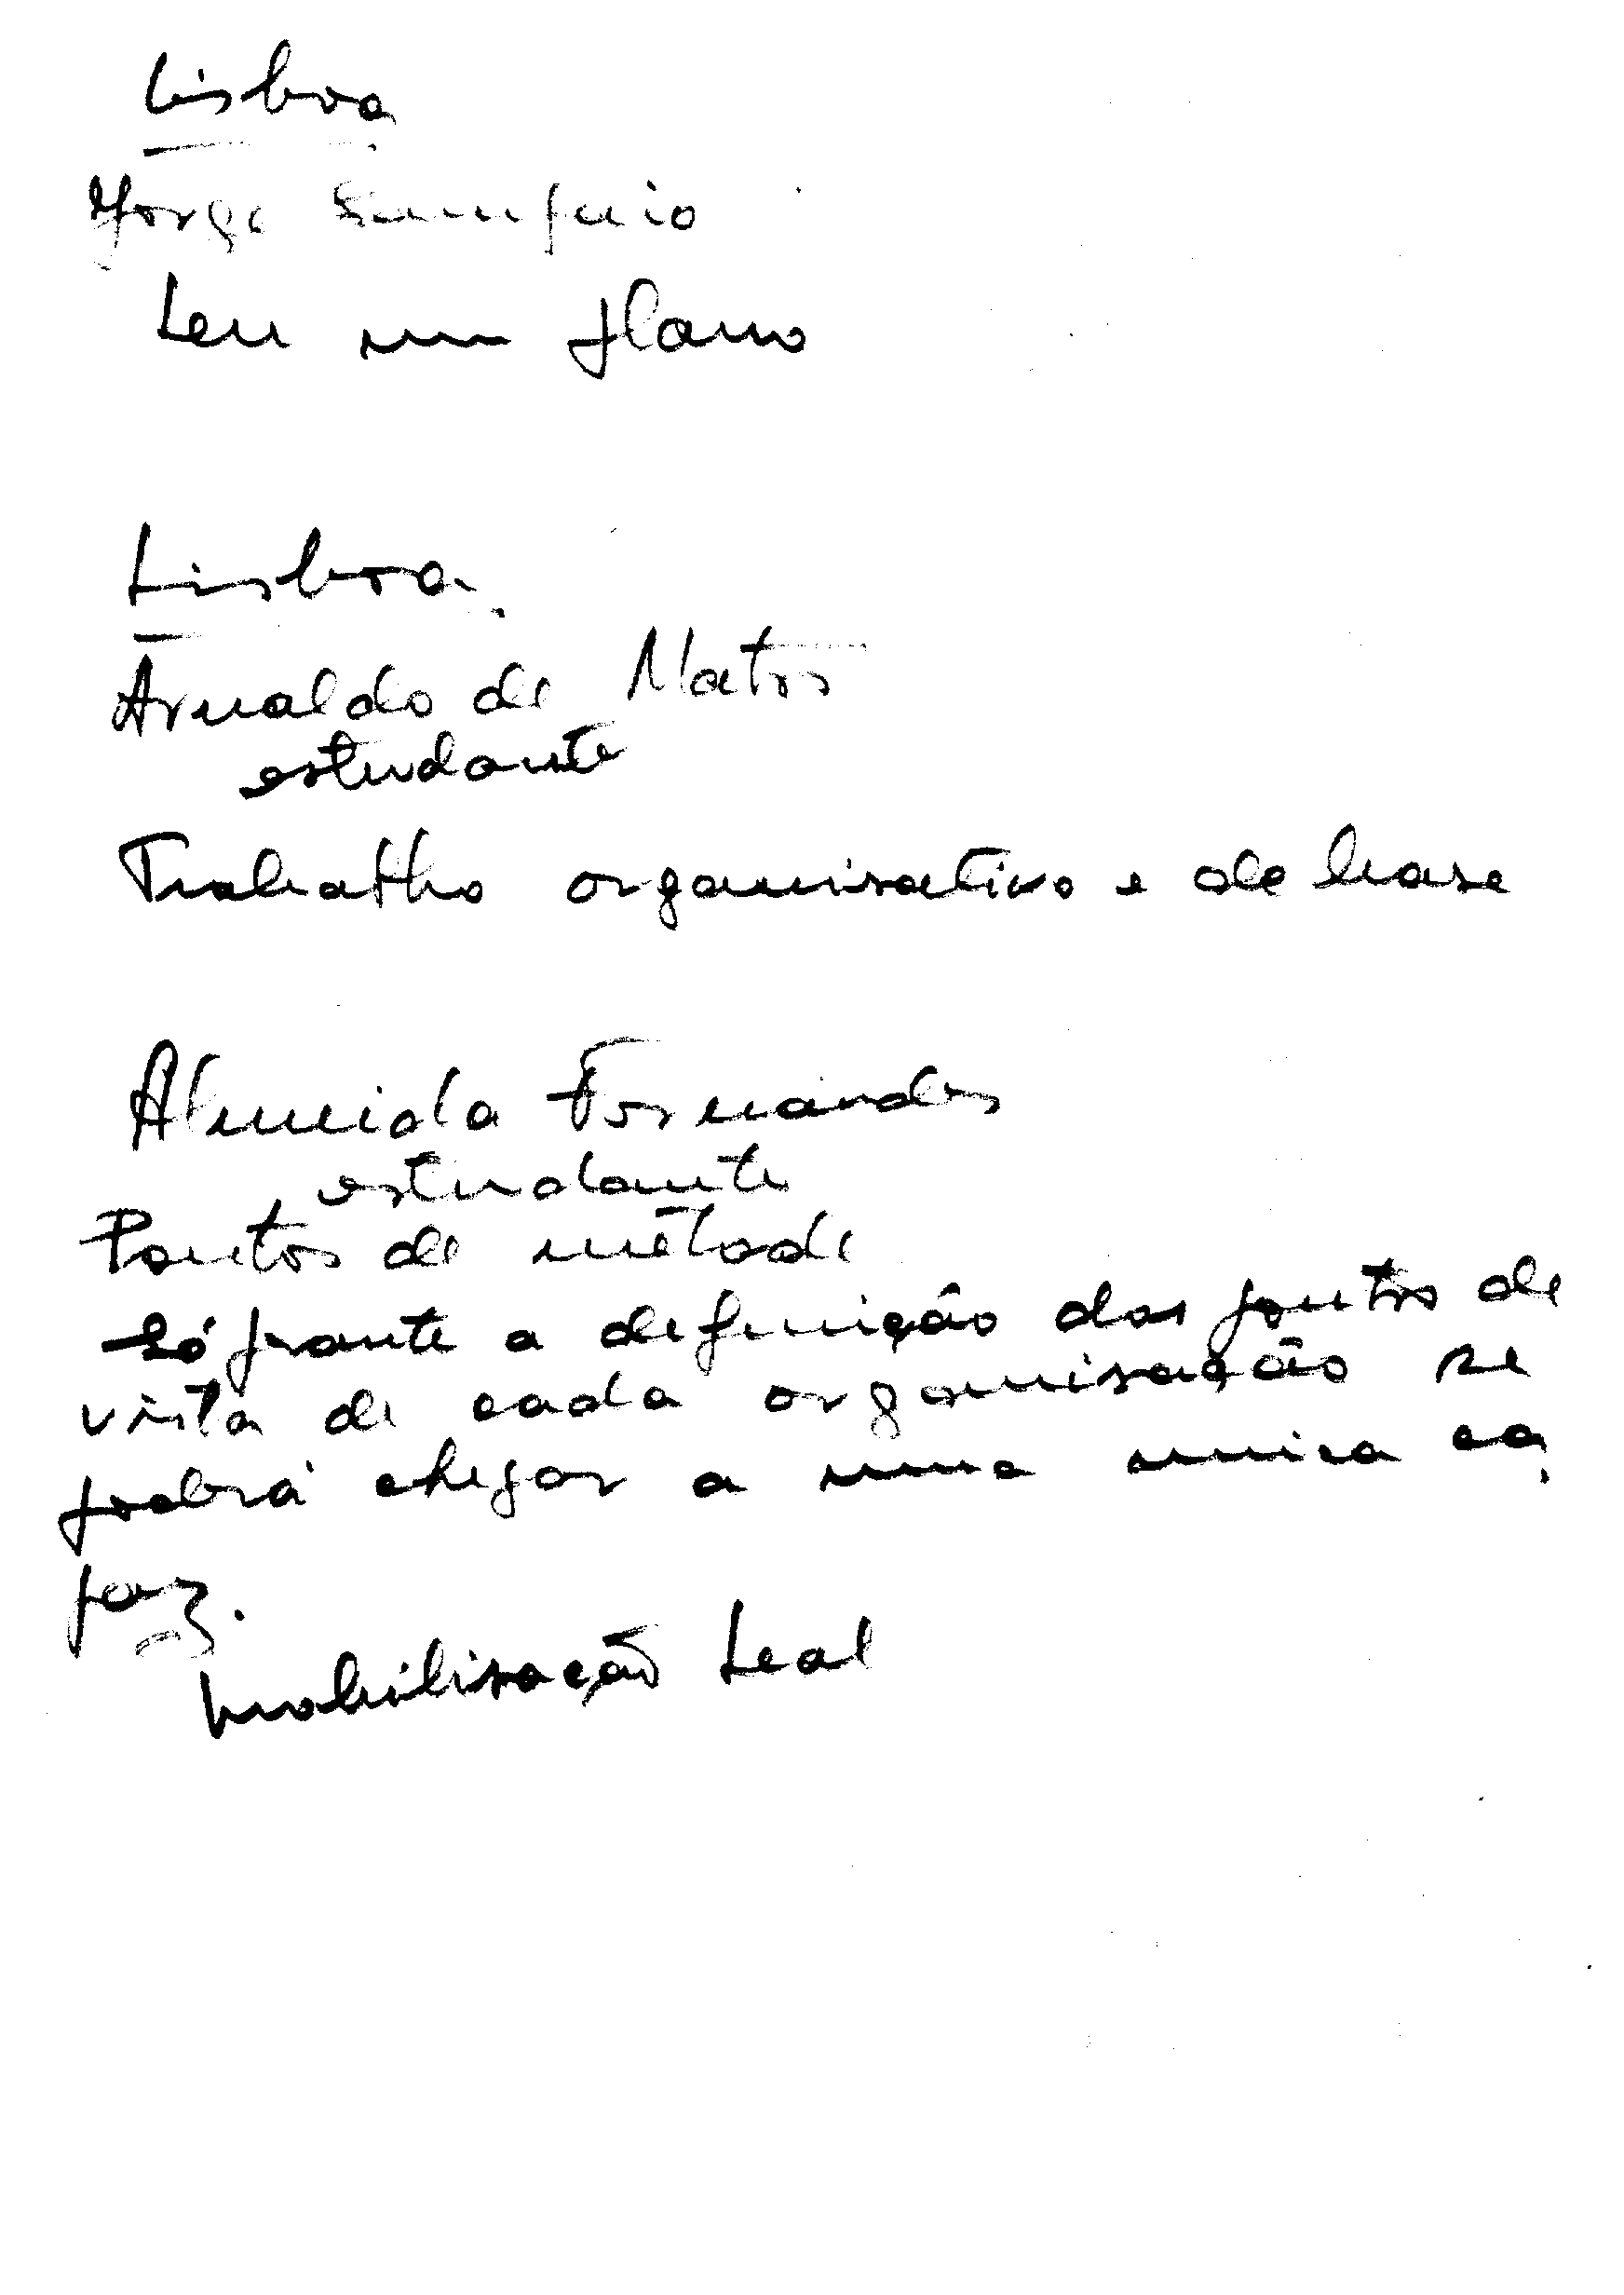 Lisboa
Jorge Sampaio
Leu um plano
Lisboa
Arnaldo de Matos
estudante
Trabalho organisativo e de base
Almeida Fernandes
estudante
Pontos de método
Só frante a definição dos pontos de
vista de cada organisação se
poderá chegar a uma unica ca,
paz.
Mobilisação Leal